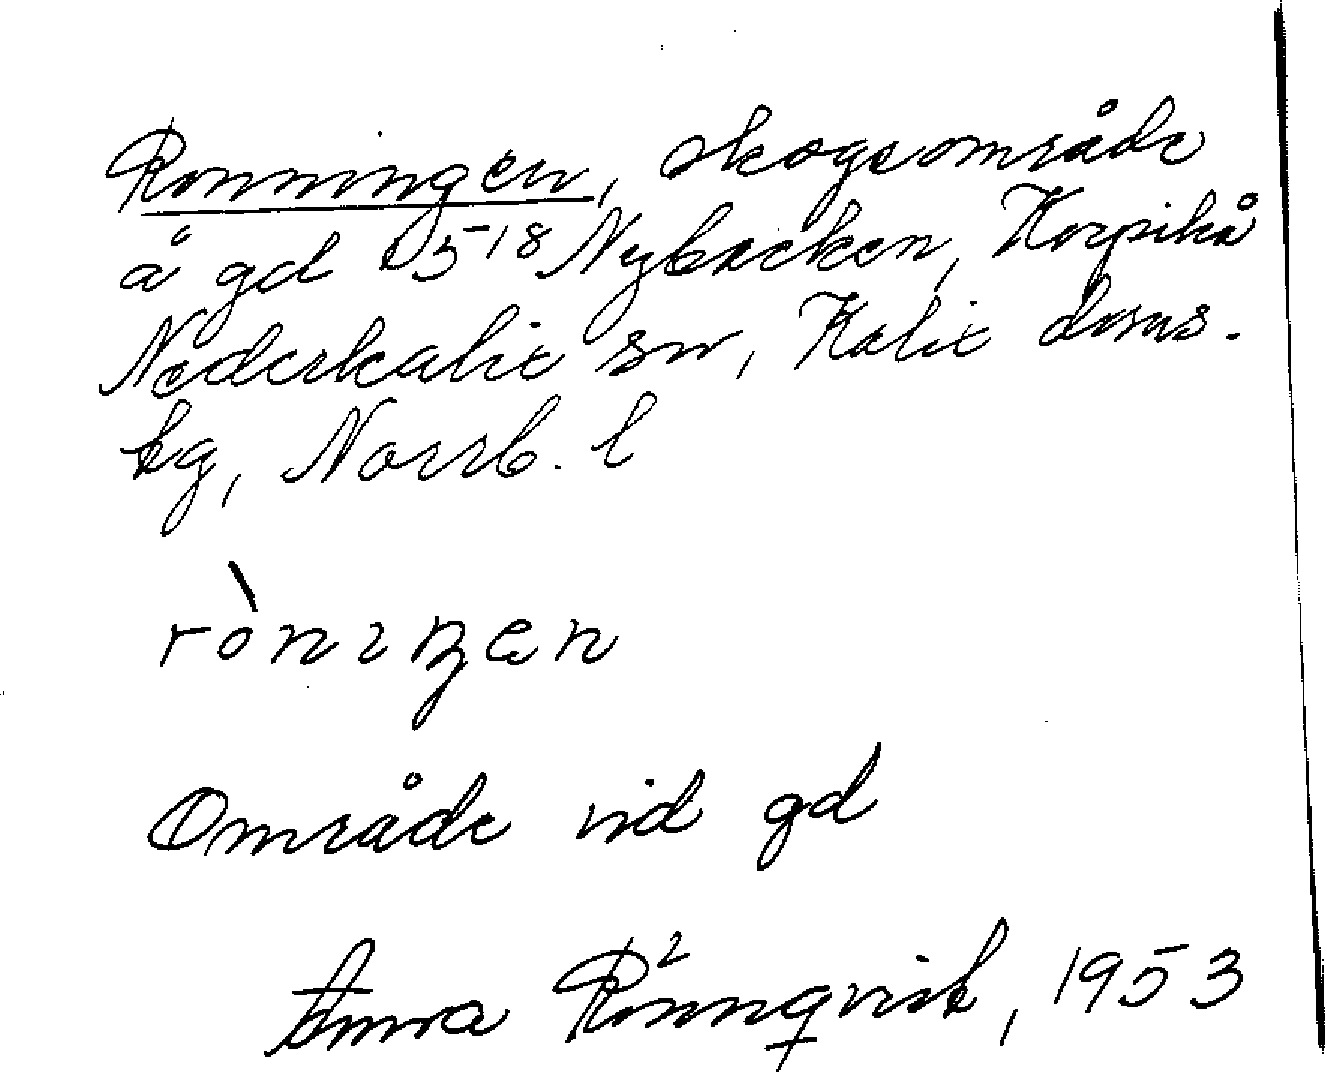 Ronningen, skogsområde
å gd 5¹⁸ Nybacken, Korpikå
Nederkalix sn, Kalix doms.
tg, Norrb. l
ròniŋen
Område vid gd
Anna Rönnqvist, 1953